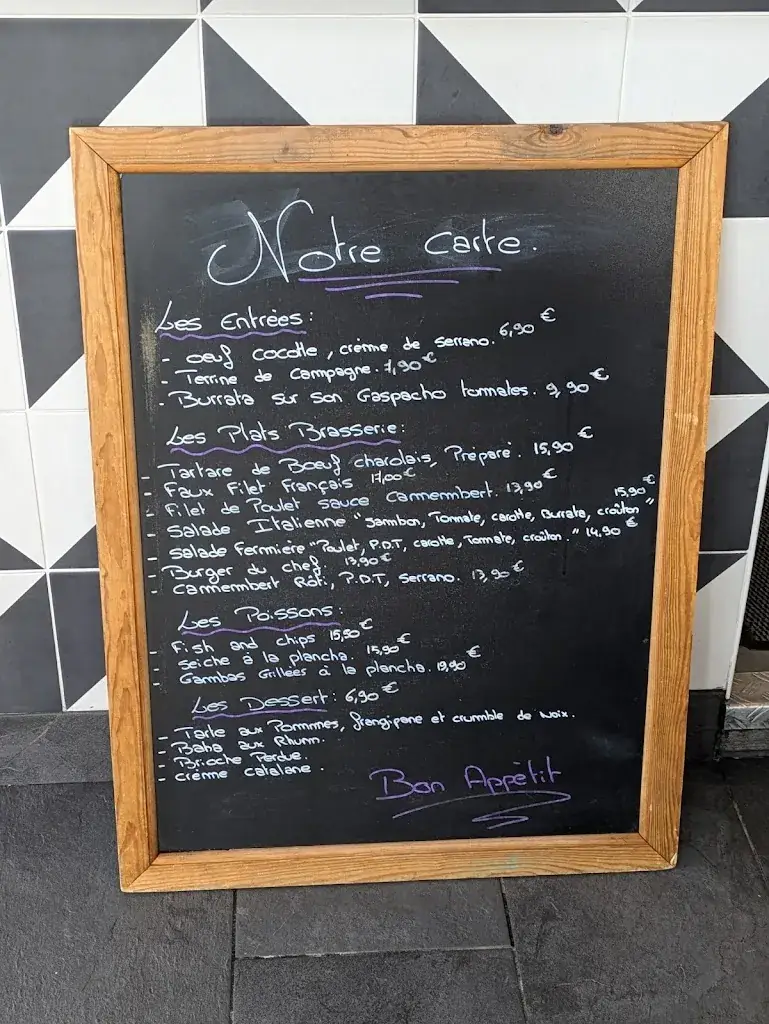 Notre carte.
Les Entrées :
- oeuf cocotte, crème de serrano. 6,90 €
- Terrine de Campagne. 7,90 €
- Burrata sur son Gaspacho tommates. 9,90 €
Les Plats Brasserie :
- Tartare de Boeuf charolais, Préparé. 15,90 €
- Faux Filet Français 17,00 €
- Filet de Poulet sauce Cammembert. 13,90 €
- Salade Italienne "Jambon, Tommate, carotte, Burrata, croûton" 15,90 €
- Salade Fermière "Poulet, P.D.T, carotte, Tommate, croûton." 14.90 €
- Burger du chef 13,90 €
- Cammembert Rôti, P.D.T, serrano. 13,90 €
Les Poissons :
- Fish and chips 15,50 €
- Seiche à la plancha. 15,90 €
- Gambas Grillées à la plancha. 19,90 €
Les Dessert : 6,90 €
- Tarte aux Pommmes, frangipane et crumble de noix.
- Baba aux Rhum.
- Brioche Perdue.
- crème catalane.
Bon Appétit